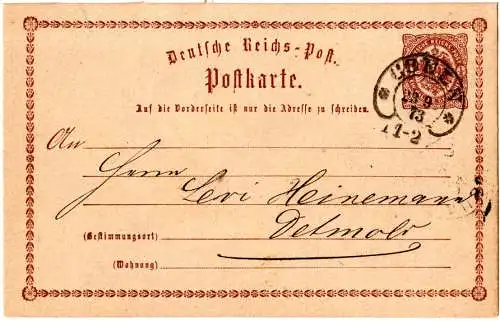 Deutsche Reichs-Post.
Postkarte.
Auf die Vorderseite ist nur die Adresse zu schreiben.
* UNNEN *
9
73
1-2
An
Herrn Levi Heinemann
Detmold
(Bestimmungsort)
(Wohnung)